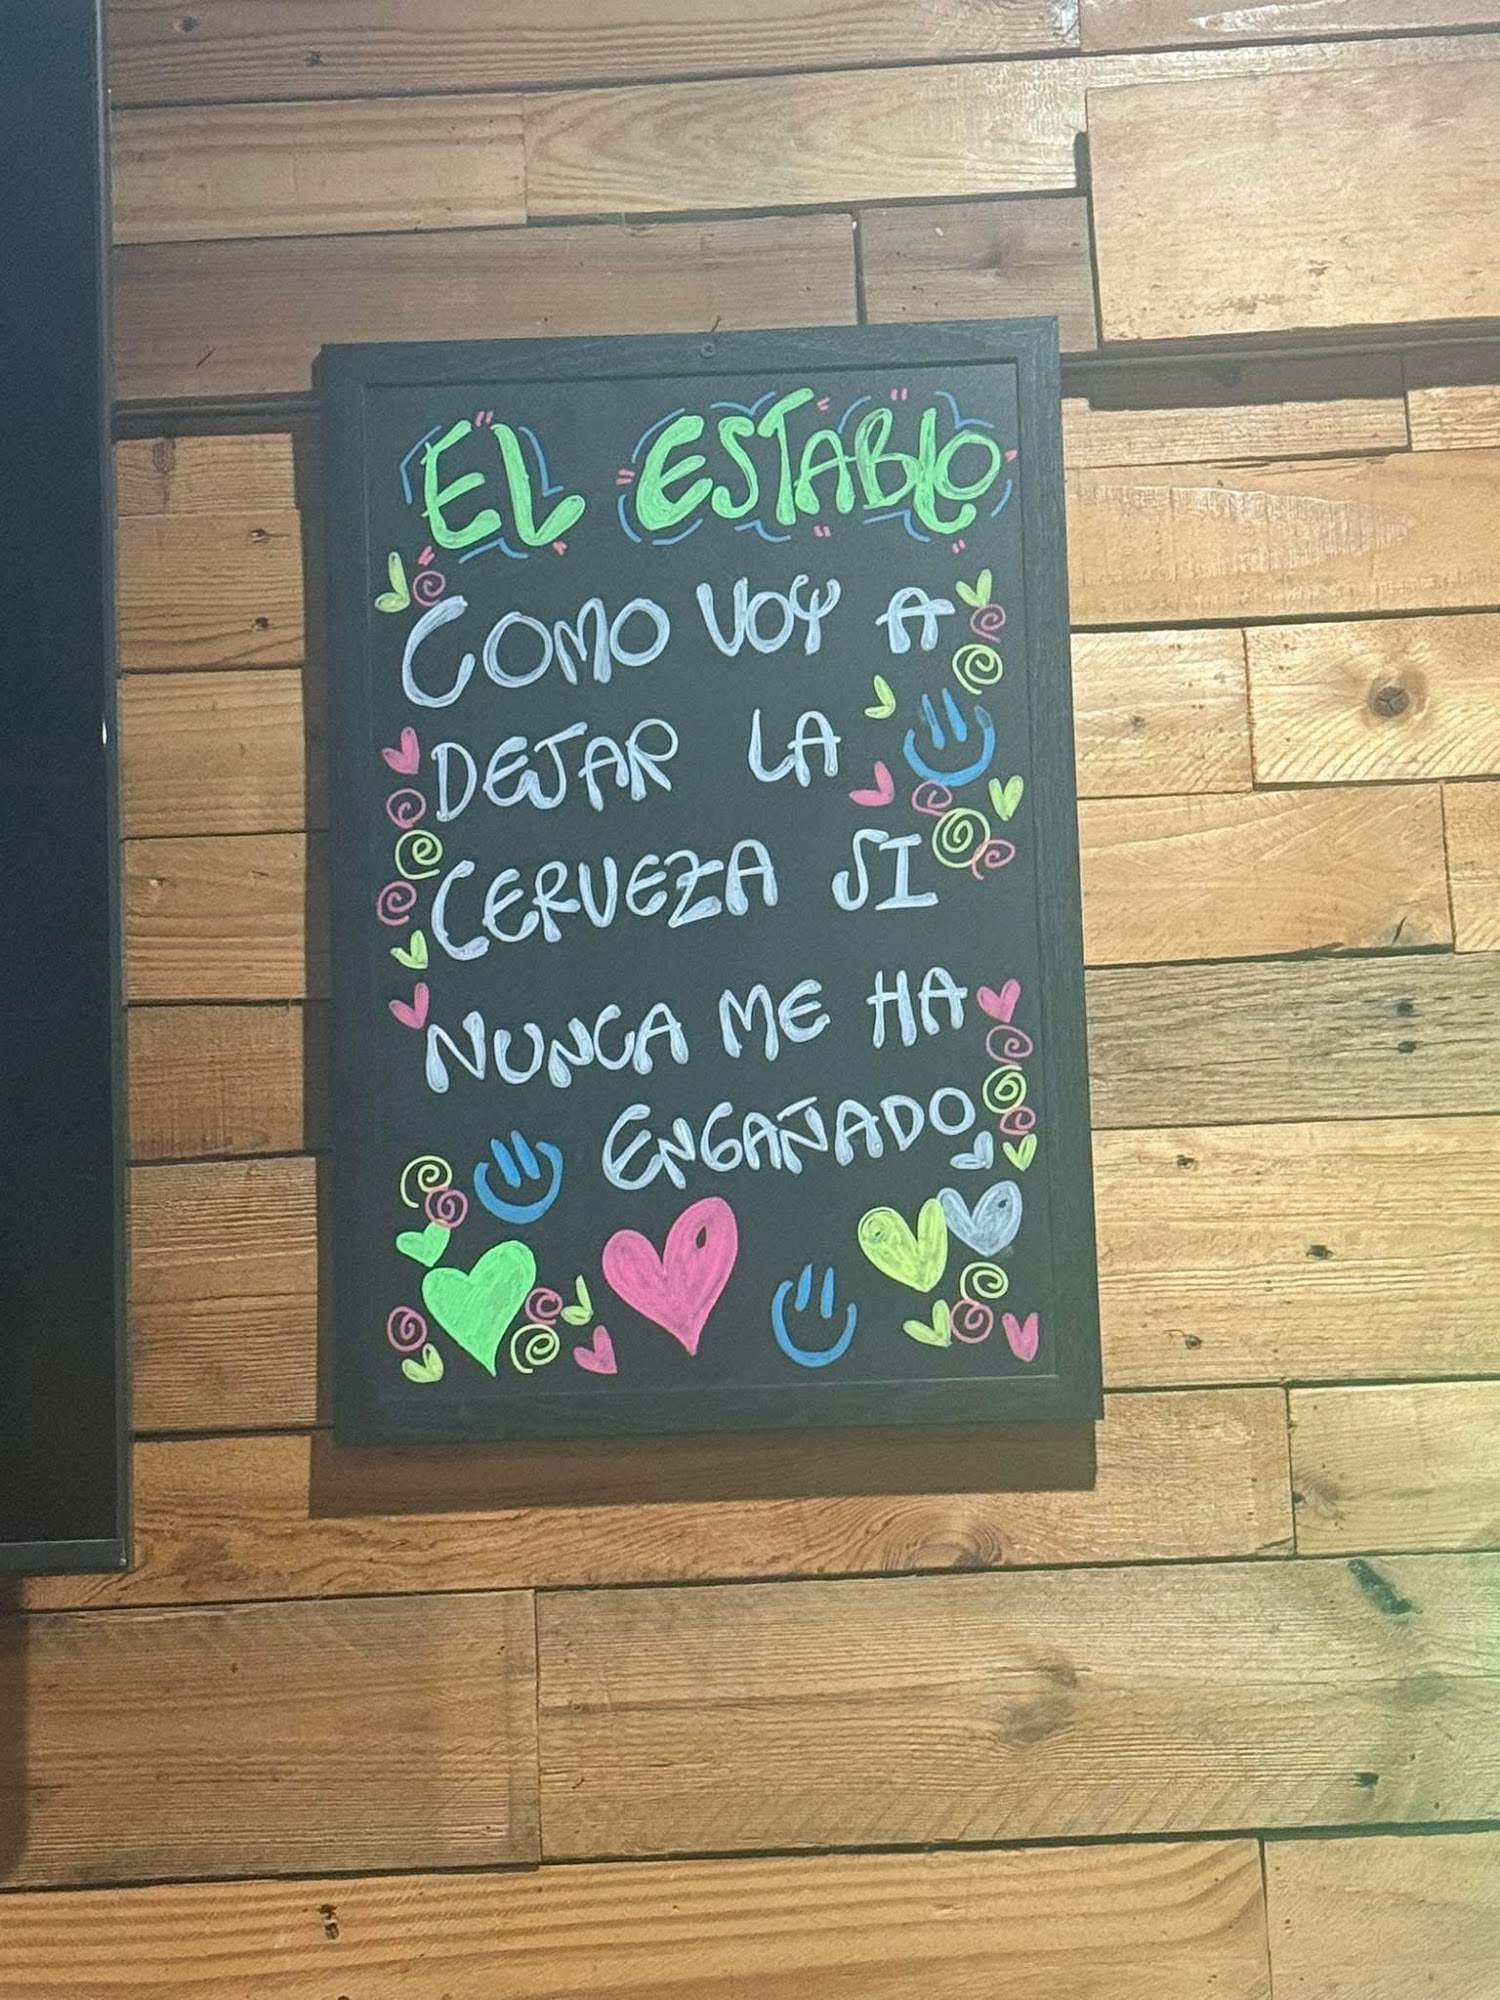 EL ESTABLO
COMO VOY A
DEJAR LA
CERVEZA SI
NUNCA ME HA
ENGAÑADO